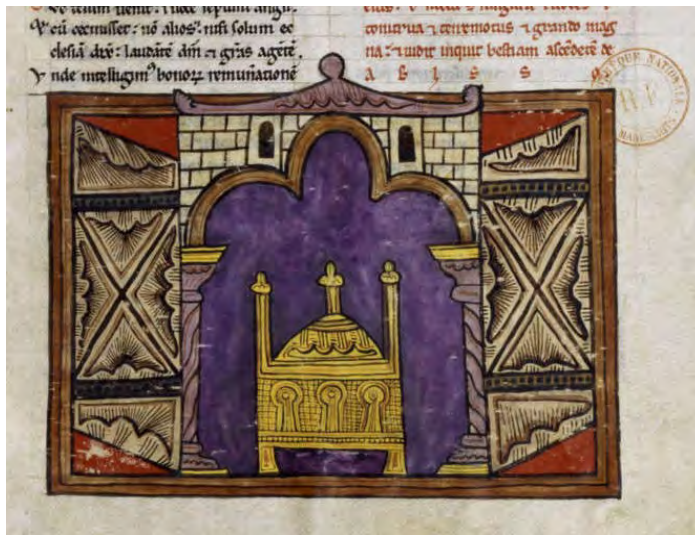 cū cecinisset: nō alios: nisi solum ec
clesiā dix̄: laudātē dn̄i ⁊ grās agētē,
ynde intelligim⁹ bonoꝝ remun̄atione
⁊ terremotus ⁊ grando mag
na: ⁊ uidit inquit bestiam ascēdētē de
a b i s s o
QUE NATIONALE
MANUSCRITS